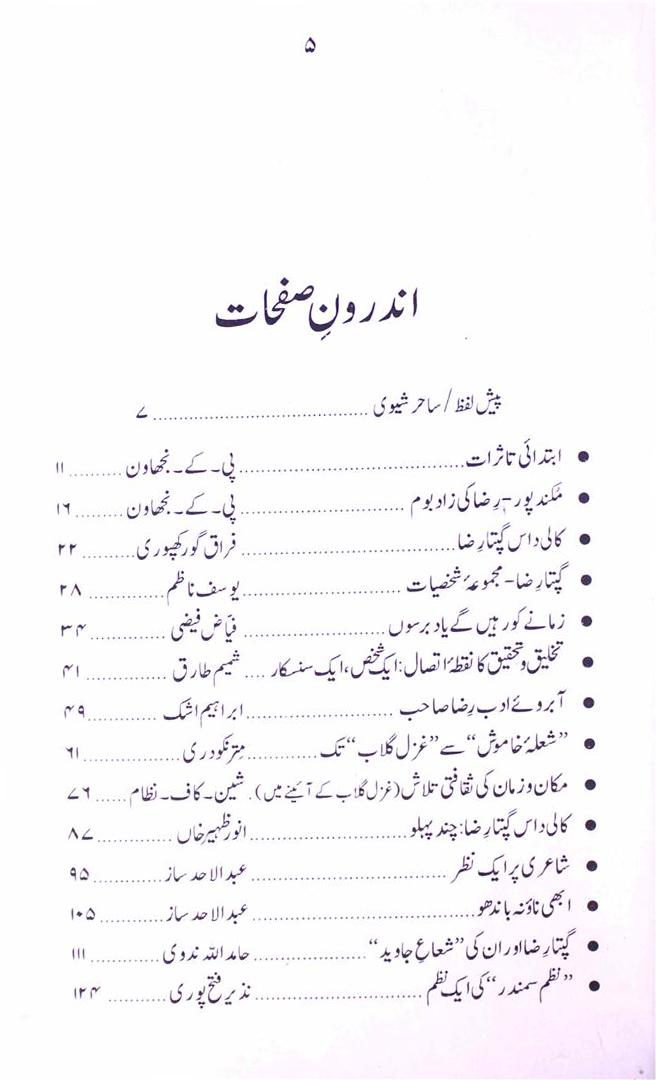 ۵
اندرونِ صفحات
پیش لفظ / ساحر شیوی ........................................ ۷
● ابتدائی تاثرات ........................................ پی۔ کے۔ نجھاون ......... ۱۱
● مکند پور۔ رضا کی زادبوم ............................... پی۔ کے۔ نجھاون ........ ۱۶
● کالی داس گپتا رضا ........................................ فراق گورکھپوری ......... ۲۲
● گپتا رضا - مجموعۂ شخصیات ............................. یوسف ناظم ............ ۲۸
● زمانے کو رہیں گے یاد برسوں ......................... فیّاض فیضی ............ ۳۴
● تخلیق و تحقیق کا نقطۂ اتصال: ایک شخص، ایک سنسکار .... شمیم طارق ............. ۴۱
● آبروئے ادب رضا صاحب ........................... ابراہیم اشک ............ ۴۹
● ”شعلۂ خاموش“ سے ”غزل گلاب“ تک ............... متر نکودری ............... ۶۱
● مکان و زمان کی ثقافتی تلاش (غزل گلاب کے آئینے میں) . شین۔ کاف۔ نظام ...... ۷۶
● کالی داس گپتا رضا: چند پہلو ........................... انور ظہیر خاں ............ ۸۷
● شاعری پر ایک نظر .................................... عبدالاحد ساز ........... ۹۵
● ابھی ناؤ نہ باندھو ........................................ عبدالاحد ساز ........... ۱۰۵
● گپتا رضا اور ان کی ”شعاعِ جاوید“ .................... حامد اللہ ندوی ............ ۱۱۱
● ”نظم سمندر“ کی ایک نظم ............................... نذیر فتح پوری ............ ۱۲۴